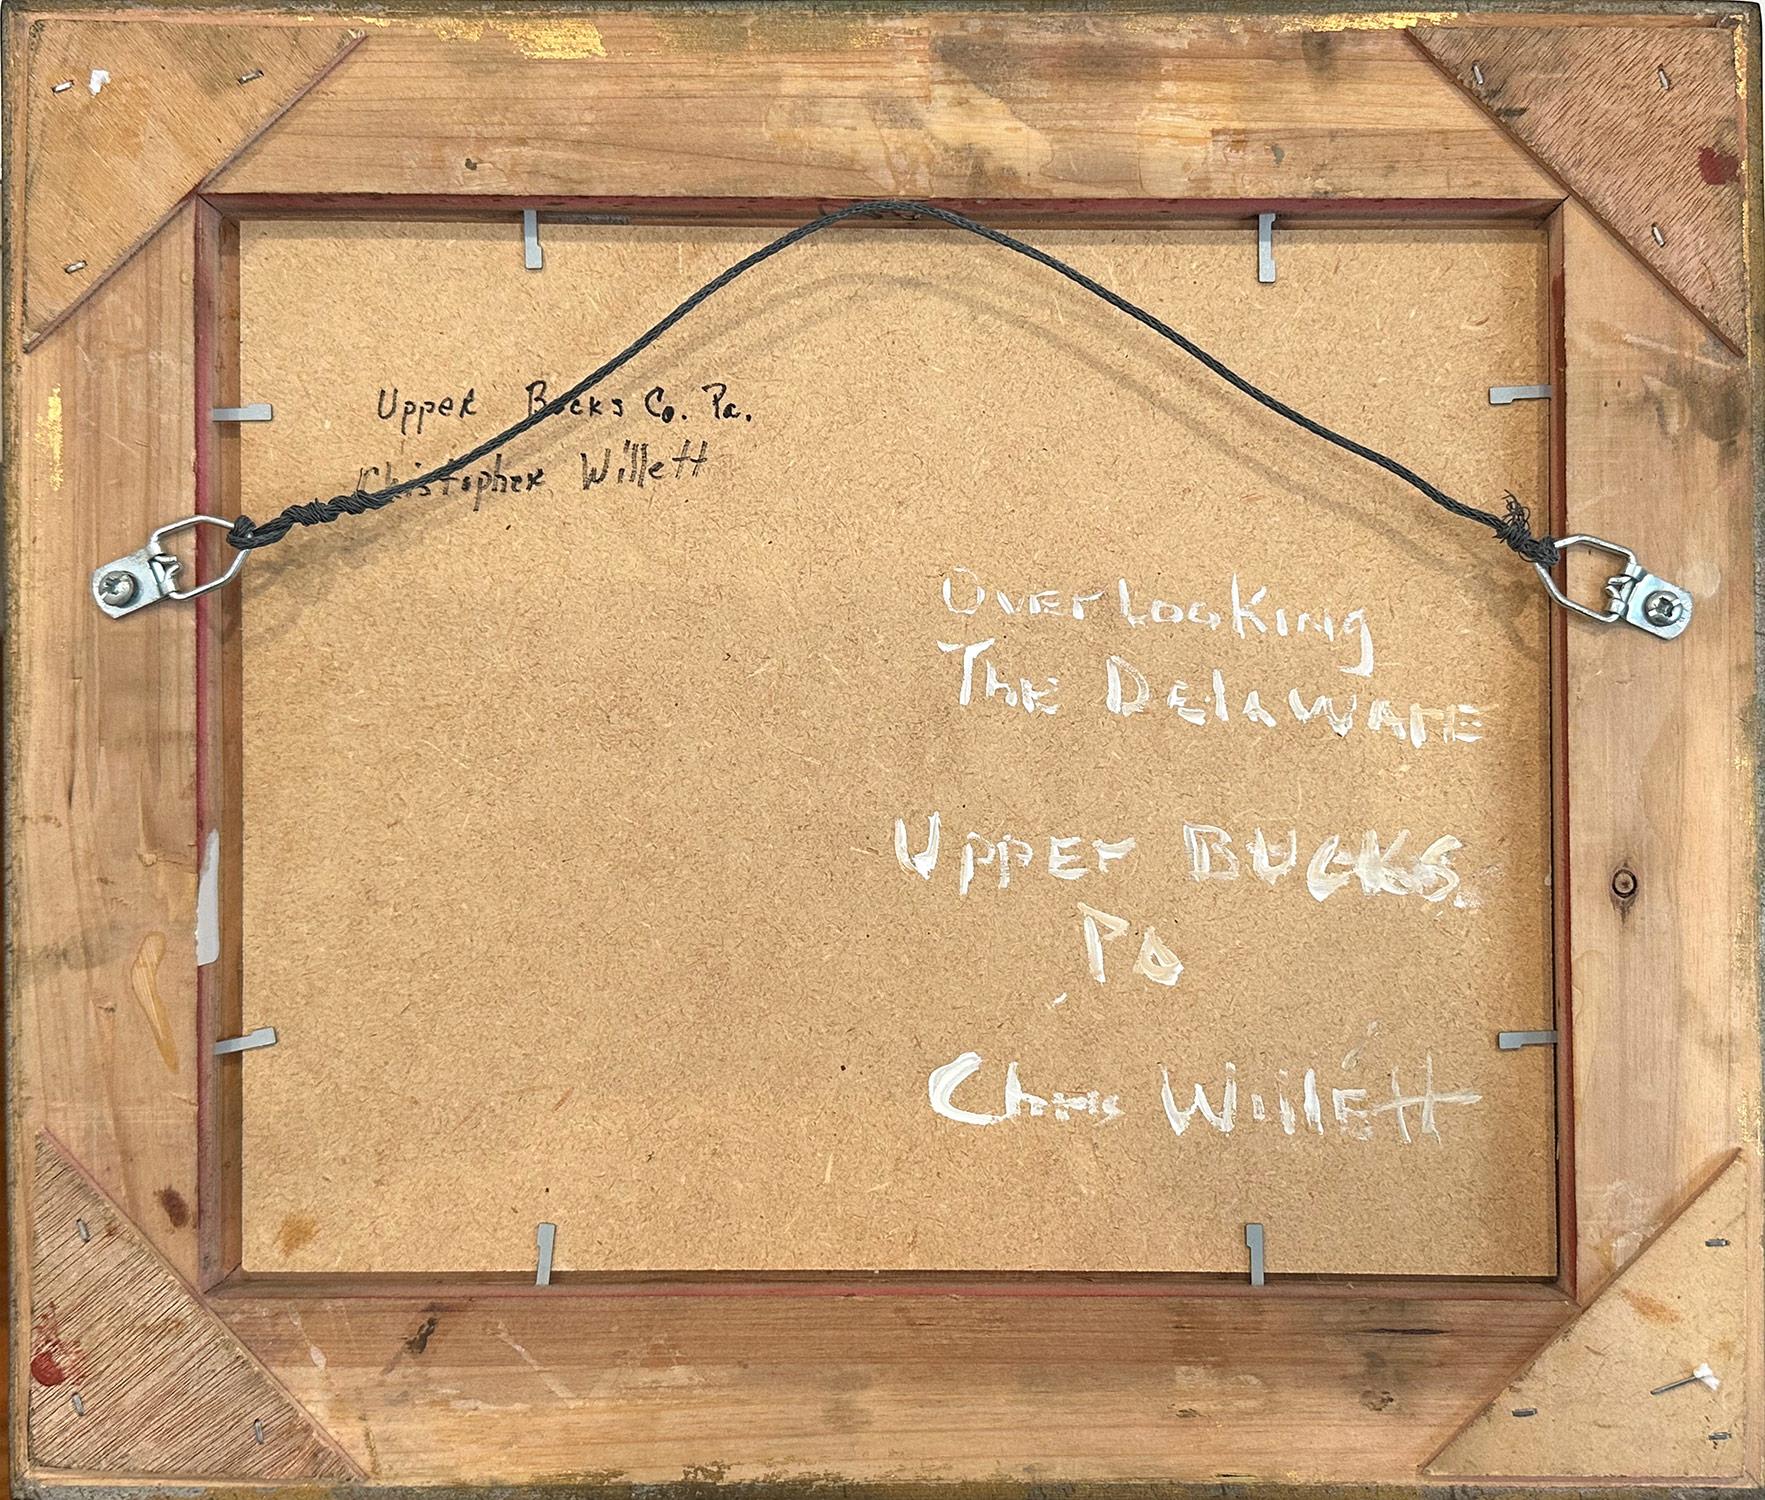 Upper Bucks Co. Pa.
Christopher Willett
Overlooking
The Delaware
Upper Bucks
Pa
Chris Willett